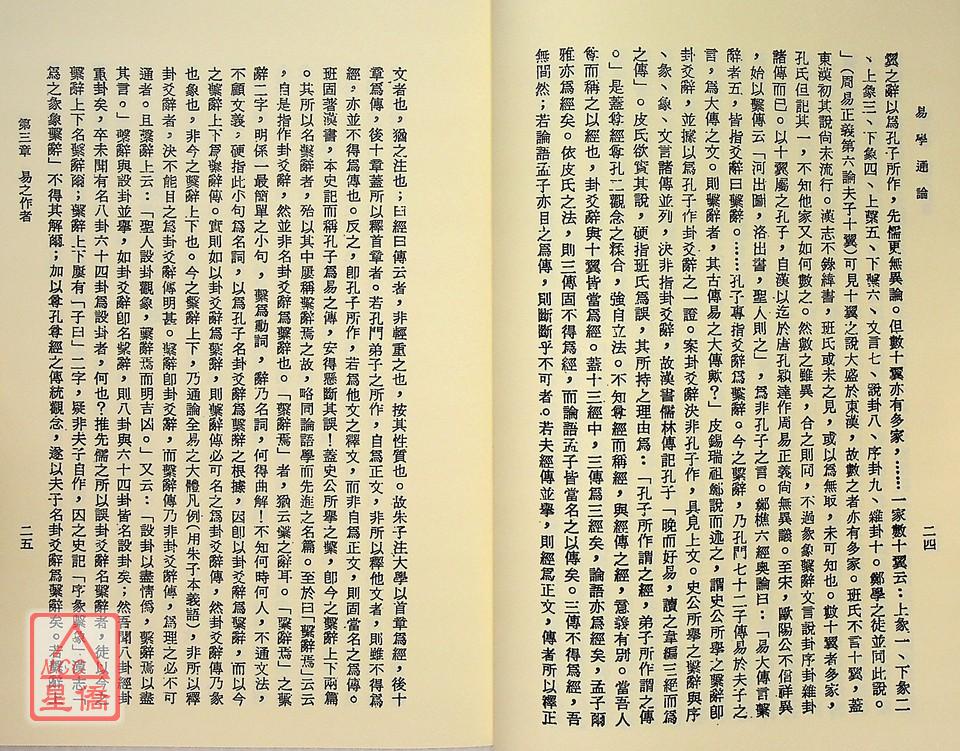 易學通論
二四
翼之辭以為孔子所作，先儒更無異論。但數十翼亦有多家，……一家數十翼云：上彖一、下彖二
、上象三、下象四、上繫五、下繫六、文言七、說卦八、序卦九、雜卦十。鄭學之徒並同此說。
」（周易正義第六論夫子十翼）可見十翼之說大盛於東漢，故數之者亦有多家。班氏不言十翼，蓋
東漢初其說尚未流行。漢志不錄緯書，班氏或未之見，或以為無取，未可知也。數十翼者多家，
孔氏但記其一，不知他家又如何數之。然數之雖異，合之則同，不過彖象繫辭文言說卦序卦雜卦
諸傳而已。以十翼屬之孔子，自漢以迄於唐孔穎達作周易正義尚無異議。至宋，歐陽公不信祥異
，始以繫傳云「河出圖，洛出書，聖人則之」，為非孔子之言。鄭樵六經奧論曰：「易大傳言繫
辭者五，皆指爻辭曰繫辭。……孔子專指爻辭為繫辭。今之繫辭，乃孔門七十二子傳易於夫子之
言，為大傳之文。則繫辭者，其古傳易之大傳歟？」皮錫瑞祖鄭說而述之，謂史公所舉之繫辭即
卦爻辭，並據以為孔子作卦爻辭之一證。案卦爻辭決非孔子作，具見上文。史公所舉之繫辭與序
、彖、象、文言諸傳並列，決非指卦爻辭，故漢書儒林傳記孔子「晚而好易，讀之韋編三絕而為
之傳」。皮氏欲貫其說，硬指班氏為誤，其所持之理由為：「孔子所作謂之經，弟子所作謂之傳
。」是蓋尊經尊孔二觀念之糅合，強自立法。不知尊經而稱經，與經傳之經，意義有別。當吾人
尊而稱之以經也，卦爻辭與十翼皆當為經。蓋十三經中，三傳為三經矣，論語亦為經矣，孟子爾
雅亦為經矣。依皮氏之法，則三傳固不得為經，而論語孟子皆當名之以傳矣。三傳不得為經，吾
無間然；若論語孟子亦目之為傳，則斷斷乎不可者。若夫經傳並舉，則經為正文，傳者所以釋正
文者也，猶之注也；曰經曰傳云者，非輕重之也，按其性質也。故朱子注大學以首章為經，後十
章為傳，後十章蓋所以釋首章者。若孔門弟子之所作，自為正文，非所以釋他文者，則雖不得為
經，亦並不得為傳也。反之，即孔子所作，若為他文之釋文，而非自為正文，則固當名之為傳。
班固著漢書，本史記而稱孔子為易之傳，安得懸斷其誤！蓋史公所舉之繫，即今之繫辭上下兩篇
。其所以名繫辭者，殆以其中屢稱繫辭焉之故，略同論語學而先進之名篇。至於曰「繫辭焉」云云
，自是指作卦爻辭，然並非名卦爻辭為繫辭也。「繫辭焉」者，猶云繫之辭耳。「繫辭焉」之繫
辭二字，明係一最簡單之小句，繫為動詞，辭乃名詞，何得曲解！不知何時何人，不通文法，
不顧文義，硬指此小句為名詞，以為孔子名卦爻辭為繫辭之根據，因即以卦爻辭為繫辭，而以今
之繫辭上下為繫辭傳。實則如以卦爻辭為繫辭，則繫辭傳必可名之為卦爻辭傳，然卦爻辭傳乃彖
也象也，非今之繫辭上下也。今之繫辭上下，乃通論全易之大體凡例（用朱子本義語），非所以釋
卦爻辭者，決不能目之為卦爻辭傳明甚。繫辭即卦爻辭，而繫辭傳乃非卦爻辭傳，為理之必不可
通者。且繫辭上云：「聖人設卦觀象，繫辭焉而明吉凶。」又云：「設卦以盡情偽，繫辭焉以盡
其言。」繫辭與設卦並舉，如卦爻辭即名繫辭，則八卦與六十四卦皆名設卦矣；然吾聞八卦經卦
重卦矣，卒未聞有名八卦六十四卦為設卦者，何也？推先儒之所以誤卦爻辭名繫辭者，徒以今之
繫辭上下名繫辭爾；繫辭上下屢有「子曰」二字，疑非夫子自作，因之史記「序彖繫象」漢志「
為之彖象繫辭」不得其解爾；加以尊孔尊經之傳統觀念，遂以夫子名卦爻辭為繫辭矣。若繫辭上
第三章　易之作者
二五
星僑